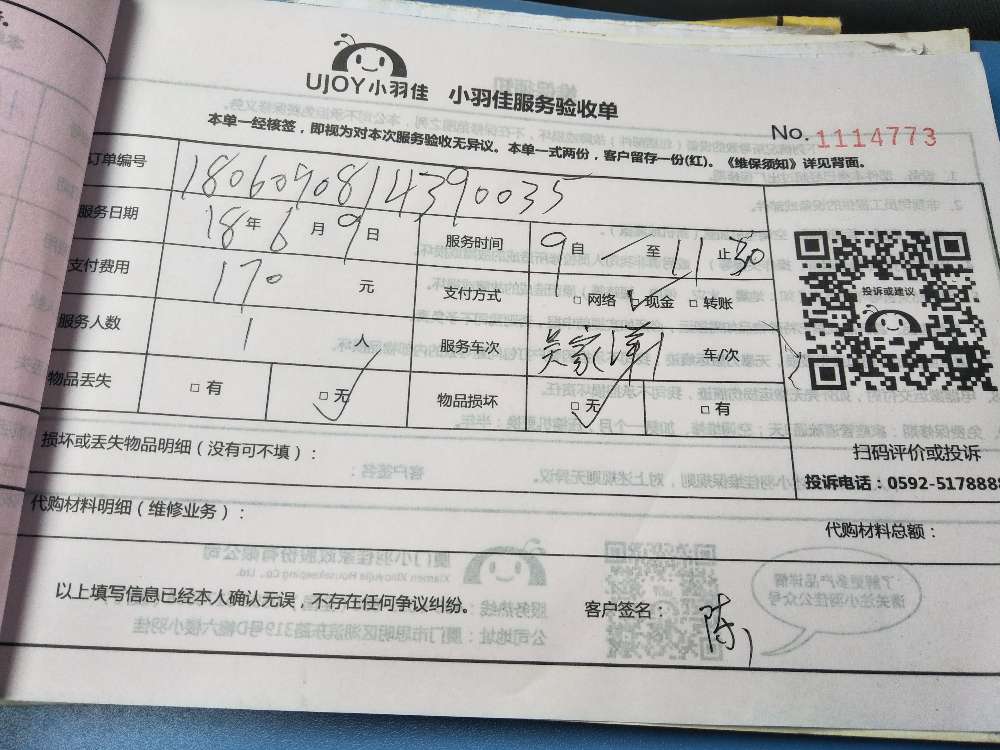 UJOY小羽佳 小羽佳服务验收单
No.1114773
本单一经核签，即视为对本次服务验收无异议。本单一式两份，客户留存一份(红)。《维保须知》详见背面。
订单编号 180609081439 0035
服务日期 18年6月9日 服务时间 9自 至11止30
支付费用 170元 支付方式 □网络 □现金 □转账
服务人数 1人 服务车次 车/次
物品丢失 □有 □无 物品损坏 □无 □有
投诉或建议
扫码评价或投诉
投诉电话：0592-5178888
损坏或丢失物品明细（没有可不填）：
代购材料明细（维修业务）：
代购材料总额：
以上填写信息已经本人确认无误，不存在任何争议纠纷。 客户签名：陈